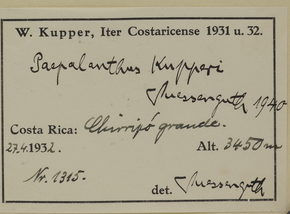 W. Kupper, Iter Costaricense 1931 u. 32.
Paepalanthus Kupperi
Suessenguth 1940
Costa Rica: Chirripó grande.
27.4.1932. Alt. 3450 m
Nr. 1315.
det. Suessenguth